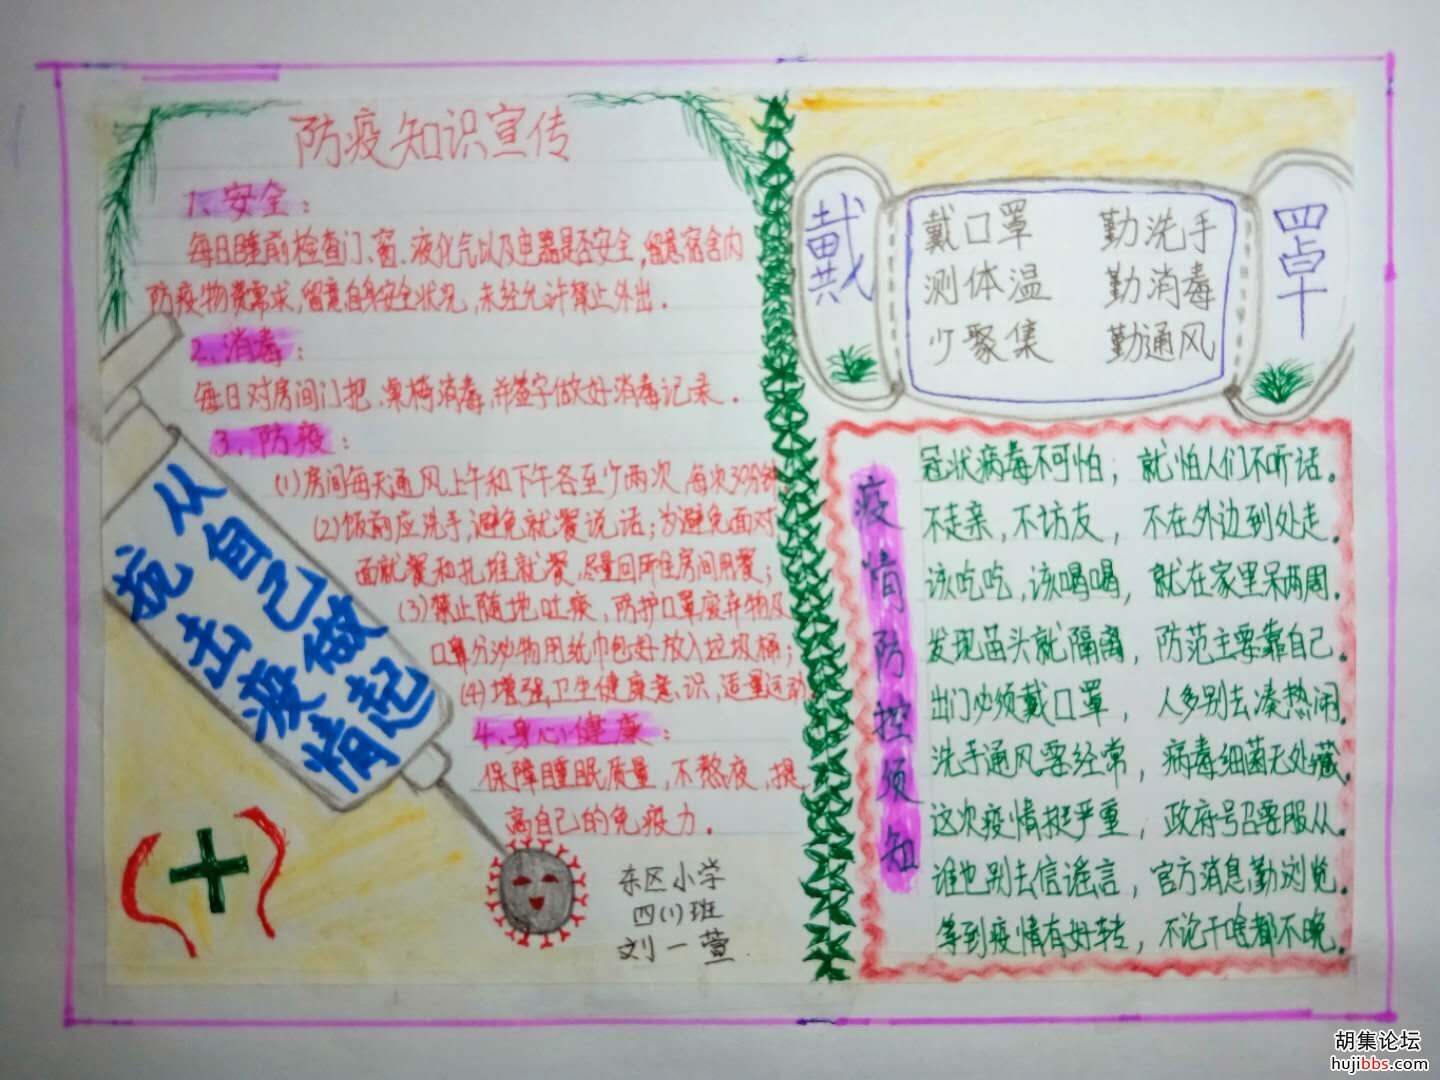 防疫知识宣传
1、安全：
每日睡前检查门、窗、液化气以及电器是否安全，留意宿舍内
防疫物资需求，留意自身安全状况，未经允许禁止外出．
2、消毒：
每日对房间门把、桌椅消毒，并签字做好消毒记录．
3、防疫：
(1)房间每天通风上午和下午各至少两次，每次30分钟
(2)饭前应洗手，避免就餐说话；为避免面对
面就餐和扎堆就餐，尽量回所住房间用餐；
(3)禁止随地吐痰，防护口罩废弃物及
口鼻分泌物用纸巾包好放入垃圾桶；
(4)增强卫生健康意识，适量运动
4、身心健康：
保障睡眠质量，不熬夜，提
高自己的免疫力．
从自己做起
抗击疫情
东区小学
四(1)班
刘一萱
戴
戴口罩 勤洗手
测体温 勤消毒
少聚集 勤通风
罩
疫情防控须知
冠状病毒不可怕；就怕人们不听话。
不走亲，不访友，不在外边到处走。
该吃吃，该喝喝，就在家里呆两周。
发现苗头就隔离，防范主要靠自己。
出门必须戴口罩，人多别去凑热闹。
洗手通风要经常，病毒细菌无处藏。
这次疫情挺严重，政府号召要服从。
谁也别去信谣言，官方消息勤浏览。
等到疫情有好转，不论干啥都不晚。
胡集论坛
hujibbs.com